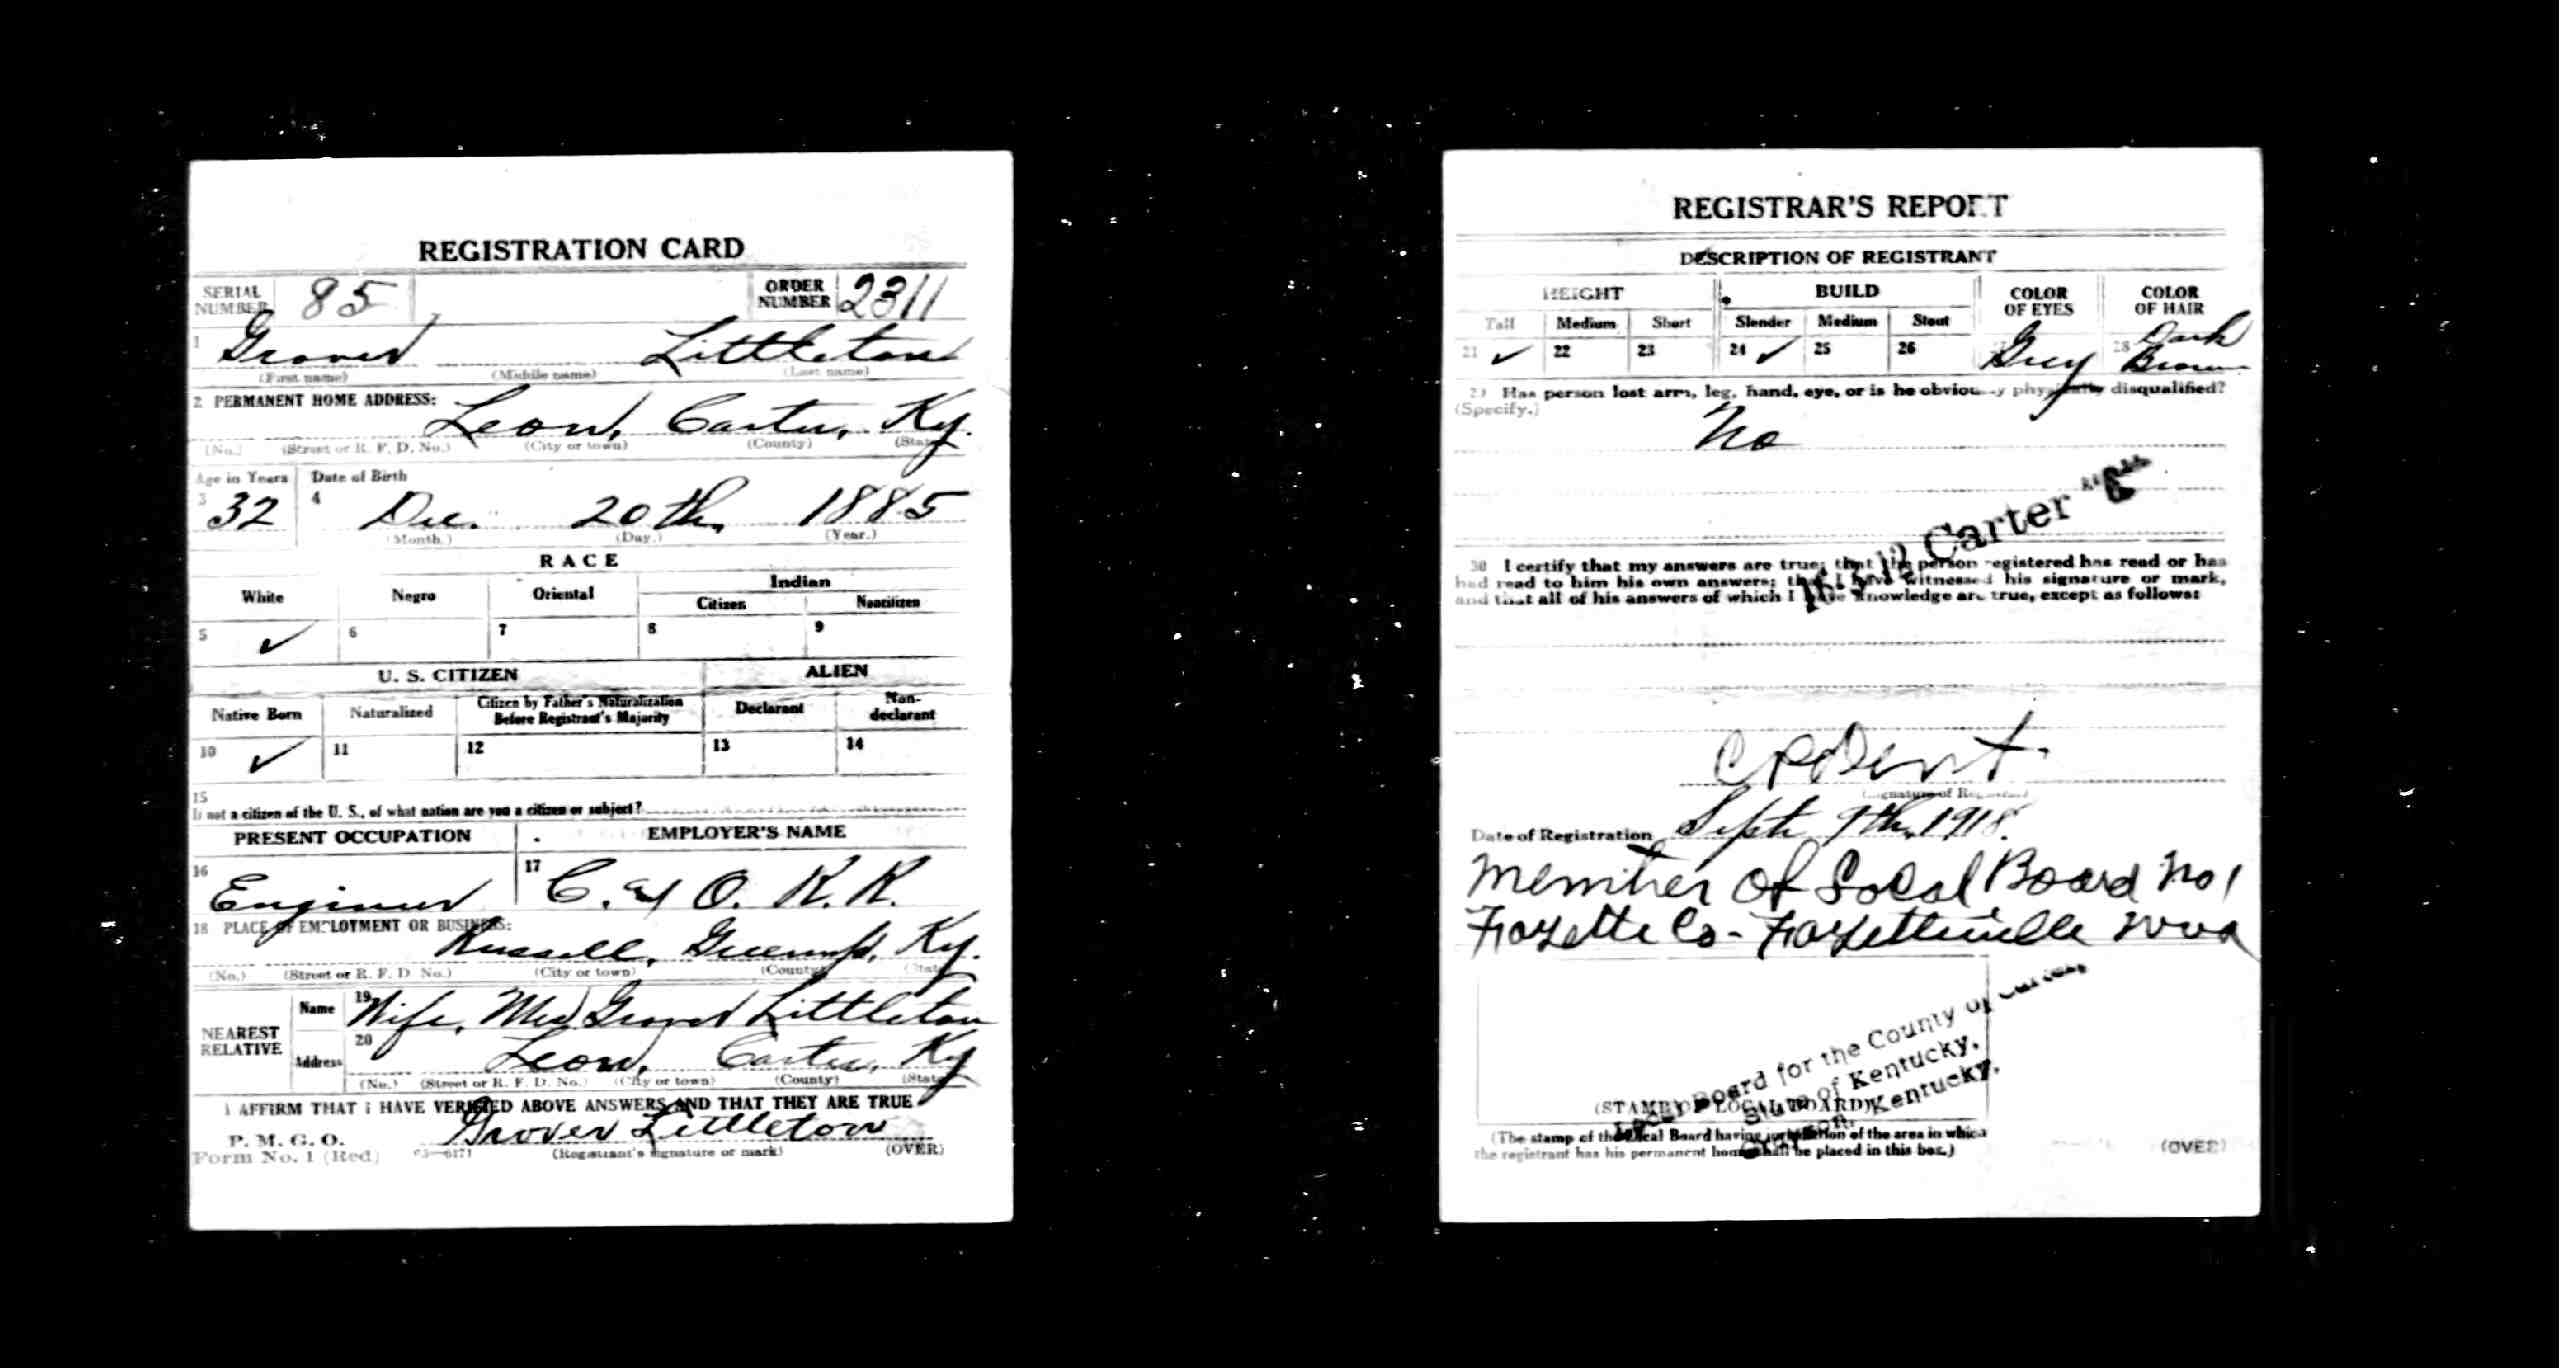 REGISTRATION CARD
SERIAL NUMBER 85 ORDER NUMBER 2311
1 Grover Littleton
(First name) (Middle name) (Last name)
2 PERMANENT HOME ADDRESS:
Leon, Carter, Ky.
(No.) (Street or R. F. D. No.) (City or town) (County) (State)
Age in Years Date of Birth
3 32 4 Dec. 20th, 1885
(Month.) (Day.) (Year.)
RACE
White Negro Oriental Indian
Citizen Noncitizen
5 ✓ 6 7 8 9
U. S. CITIZEN ALIEN
Native Born Naturalized Citizen by Father's Naturalization Before Registrant's Majority Declarant Non-declarant
10 ✓ 11 12 13 14
15
If not a citizen of the U. S., of what nation are you a citizen or subject?
PRESENT OCCUPATION EMPLOYER'S NAME
16 Engineer 17 C. & O. R. R.
18 PLACE OF EMPLOYMENT OR BUSINESS:
Russell, Greenup, Ky.
(No.) (Street or R. F. D. No.) (City or town) (County) (State)
NEAREST RELATIVE
Name 19 Wife, Mrs Grover Littleton
Address 20 Leon, Carter, Ky
(No.) (Street or R. F. D. No.) (City or town) (County) (State)
I AFFIRM THAT I HAVE VERIFIED ABOVE ANSWERS AND THAT THEY ARE TRUE
P. M. G. O.
Form No. 1 (Red)
Grover Littleton
(Registrant's signature or mark) (OVER)
REGISTRAR'S REPORT
DESCRIPTION OF REGISTRANT
HEIGHT BUILD COLOR OF EYES COLOR OF HAIR
Tall Medium Short Slender Medium Stout
21 ✓ 22 23 24 ✓ 25 26 Grey 28 Dark Brown
29 Has person lost arm, leg, hand, eye, or is he obviously physically disqualified?
(Specify.)
No
Carter
30 I certify that my answers are true; that the person registered has read or has
had read to him his own answers; that I have witnessed his signature or mark,
and that all of his answers of which I have knowledge are true, except as follows:
C P Dent.
(Signature of Registrar)
Date of Registration Sept. 9th, 1918.
Member of Local Board No 1
Fayette Co - Fayetteville WVa
Local Board for the County of Carter,
State of Kentucky,
Kentucky.
(STAMP OF LOCAL BOARD)
(The stamp of the Local Board having jurisdiction of the area in which
the registrant has his permanent home shall be placed in this box.)
(OVER)